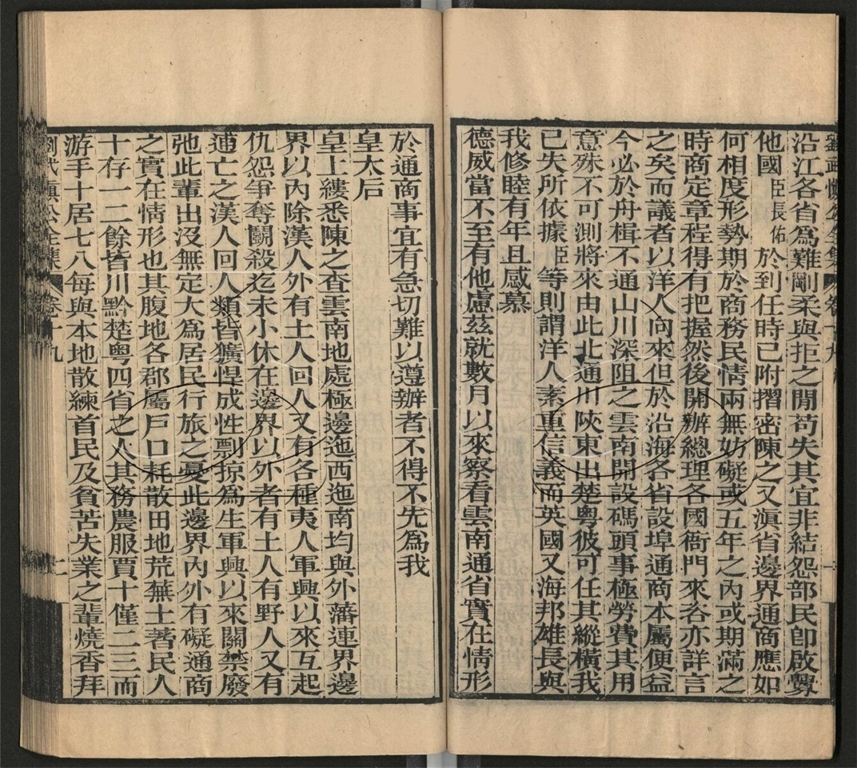 沿江各省爲難剛柔與拒之閒苟失其宜非結怨部民卽啟釁
他國臣長佑於到任時已附摺密陳之又滇省邊界通商應如
何相度形勢期於商務民情兩無妨礙或五年之內或期滿之
時商定章程得有把握然後開辦總理各國衙門來咨亦詳言
之矣而議者以洋人向來但於沿海各省設埠通商本屬便益
今必於舟楫不通山川深阻之雲南開設碼頭事極勞費其用
意殊不可測將來由此北通川陝東出楚粵彼可任其縱橫我
已失所依據臣等則謂洋人素重信義而英國又海邦雄長與
我修睦有年且感慕
德威當不至有他慮茲就數月以來察看雲南通省實在情形
於通商事宜有急切難以遵辦者不得不先爲我
皇太后
皇上縷悉陳之查雲南地處極邊迤西迤南均與外藩連界邊
界以內除漢人外有土人回人又有各種夷人軍興以來互起
仇怨爭奪鬭殺迄未小休在邊界以外者有土人有野人又有
逋亡之漢人回人類皆獷悍成性剽掠爲生軍興以來關禁廢
弛此輩出沒無定大爲居民行旅之憂此邊界內外有礙通商
之實在情形也其腹地各郡屬戶口耗散田地荒蕪土著民人
十存一二餘皆川黔楚粵四省之人其務農服賈十僅二三而
游手十居七八每與本地散練首民及貧苦失業之輩燒香拜
劉武愼公全集 卷十九